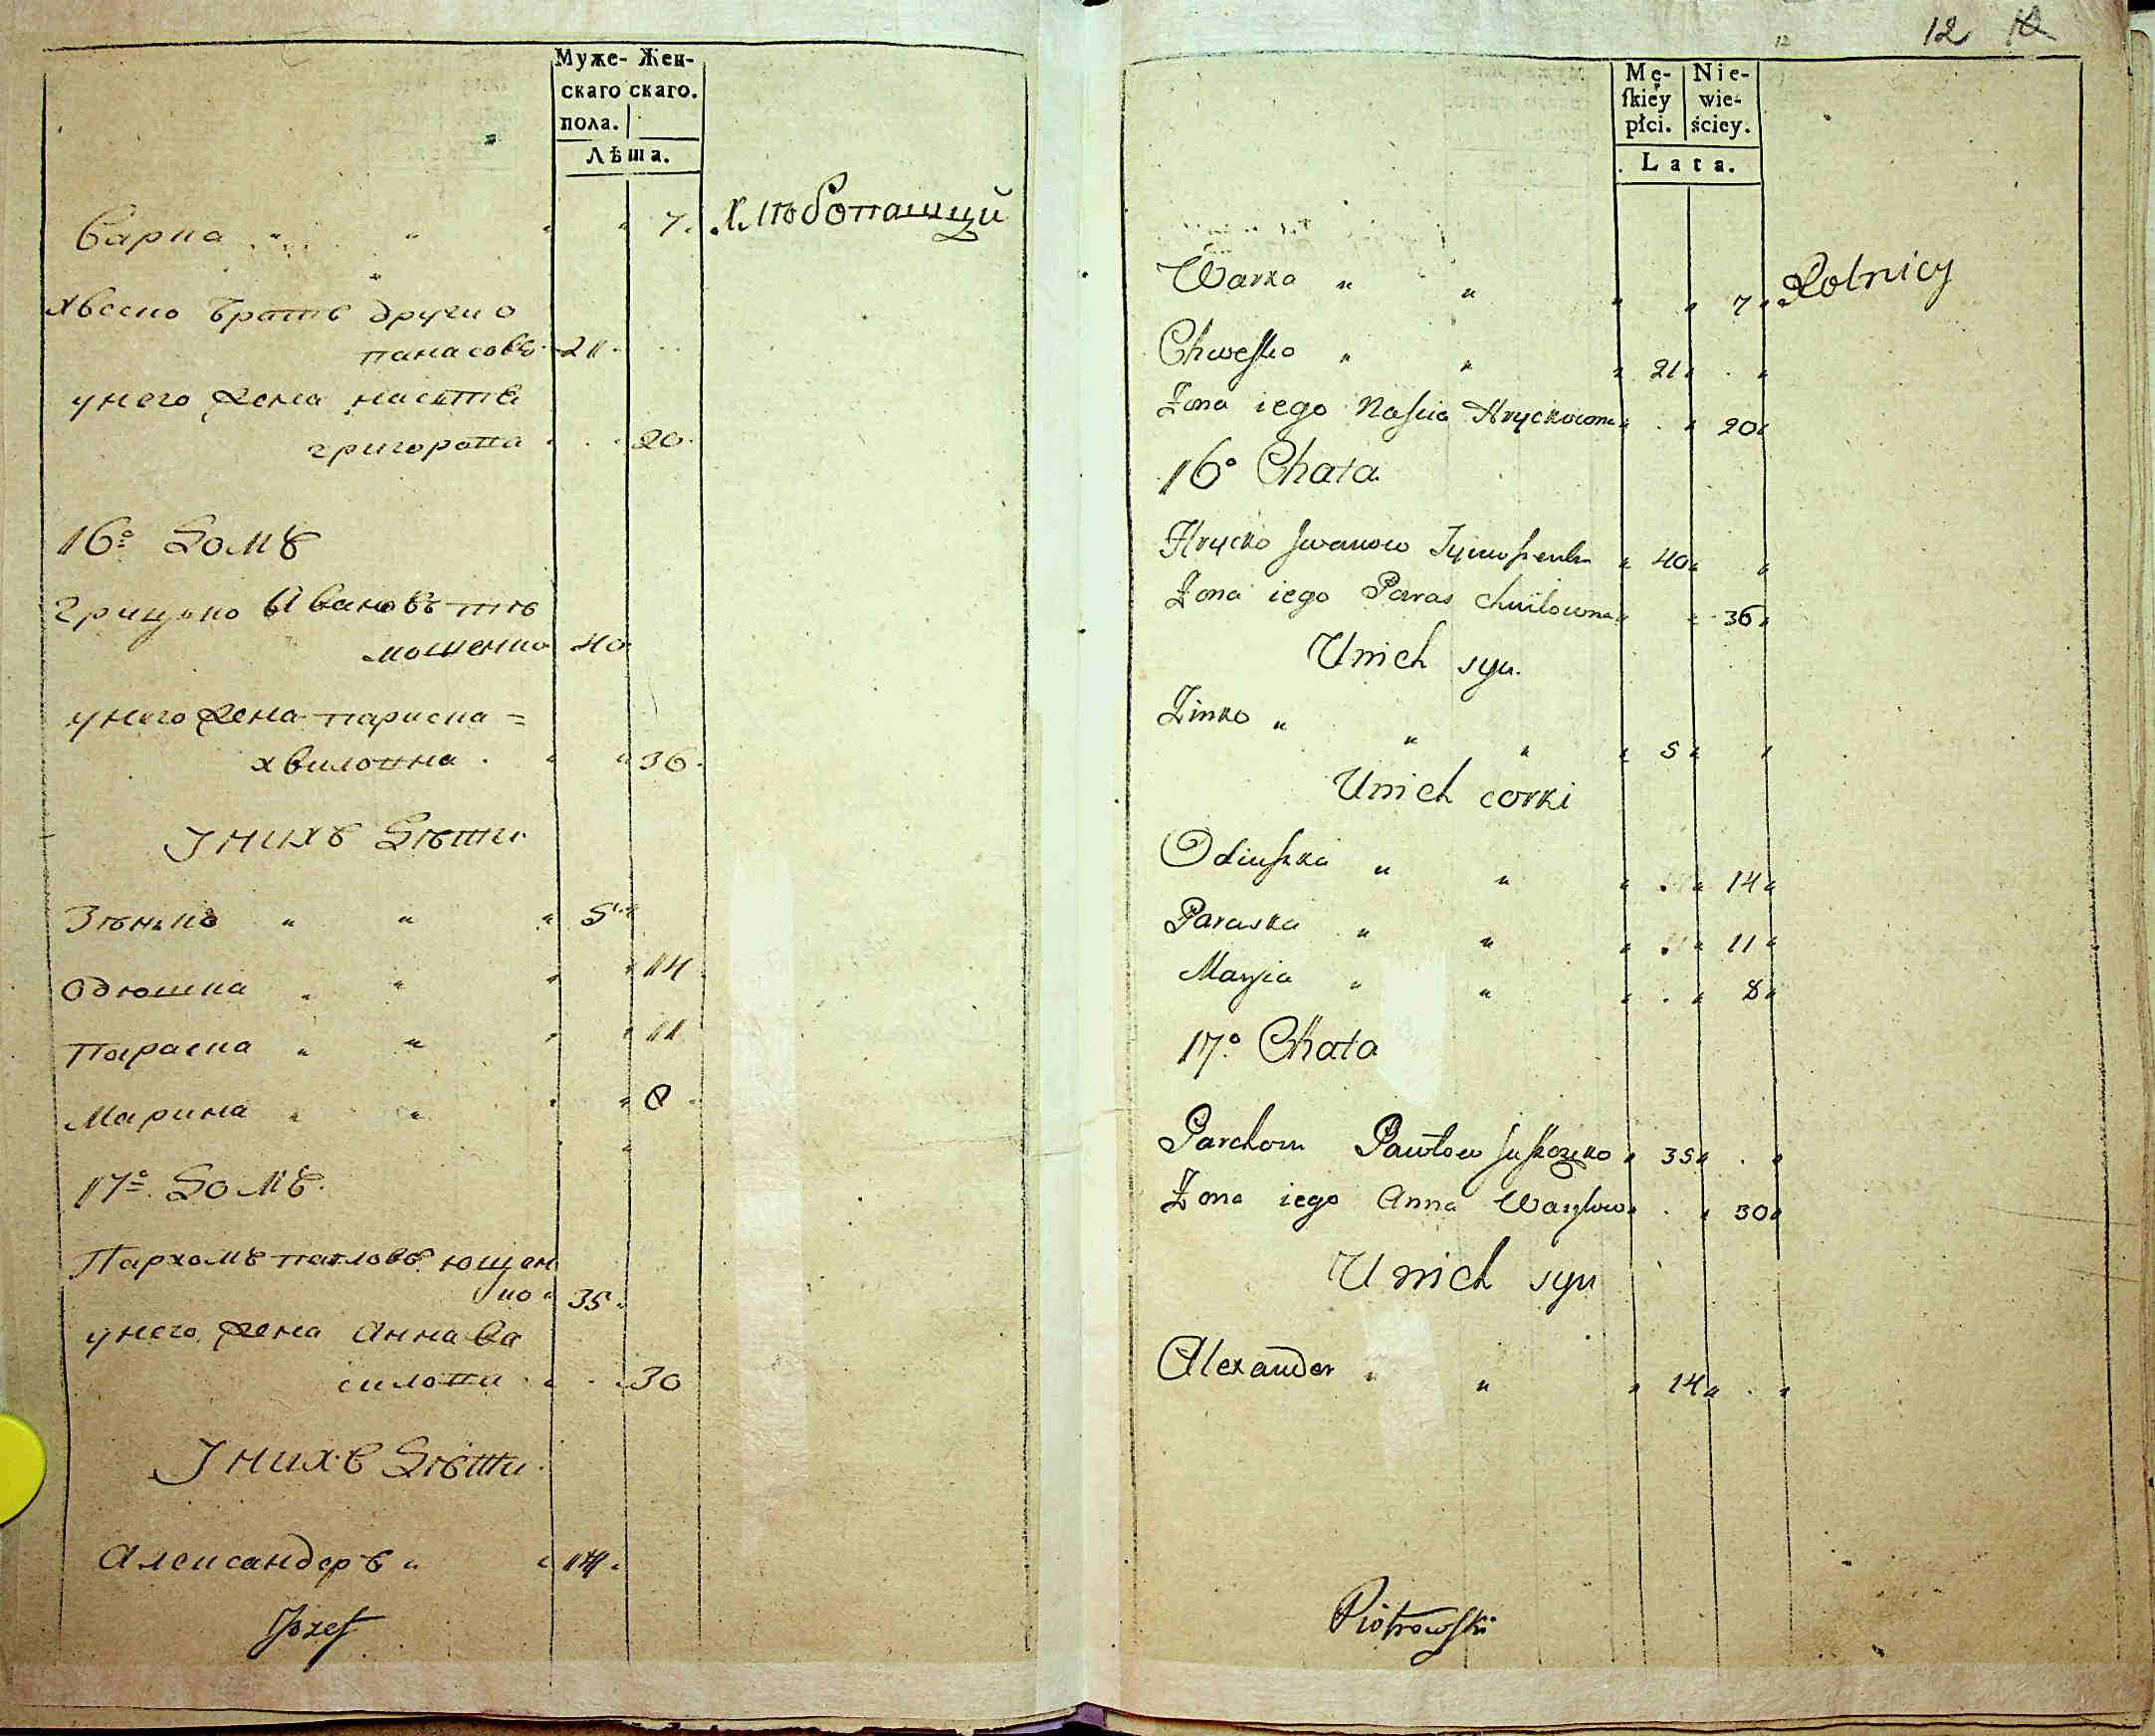 Муже- Жен-
скаго скаго.
пола.
Лѣта.
Варка " " " " 7. Хлѣбопашцы
Хвеско братъ други о
панасовъ 21
у него жена настя
григорова 20
16º Домъ
Грицько Ивановъ ти
мошенко 40
у него жена параска =
хвиловна " " 36
У нихъ Дѣти
Зѣнько " " " 5 "
Одюшка " " " " 14
Параска " " " " 11
Марина " " " " 8
17º Домъ
Пархомъ павловъ ющен
ко " 35 "
у него жена Анна Ва
силови " " 30
У нихъ Дѣти
Александеръ " " 14 "
Jozef
12
Mę- Nie-
skiéy wie-
płci. ściey.
Lata.
Warka " " " " 7 " Rolnicy
Chwesko " " " 21 " "
Żona iego Naścia Hryckowna " " 20 "
16º Chata
Hrycko Jwanow Tymoszenko " 40 " "
Żona iego Paras Chwilowna " " 36 "
U nich syn.
Zinko " " " " 5 " "
U nich corki
Odiuszka " " " " 14 "
Paraska " " " " 11 "
Maryia " " " " 8 "
17º Chata
Parchom Pawłow Juszczenko " 35 " "
Żona iego Anna Wasylow " " 30 "
U nich syn
Alexander " " " 14 " "
Piotrowski